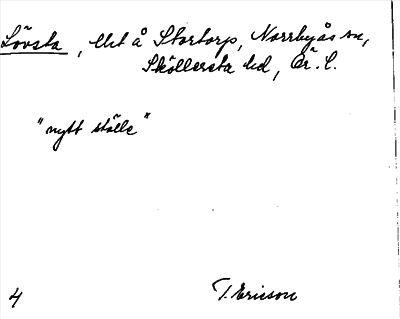 Lövsta, lht å Stortorp, Norrbyås sn,
Sköllersta hd, Ör. l.
"nytt ställe"
4 T. Ericson